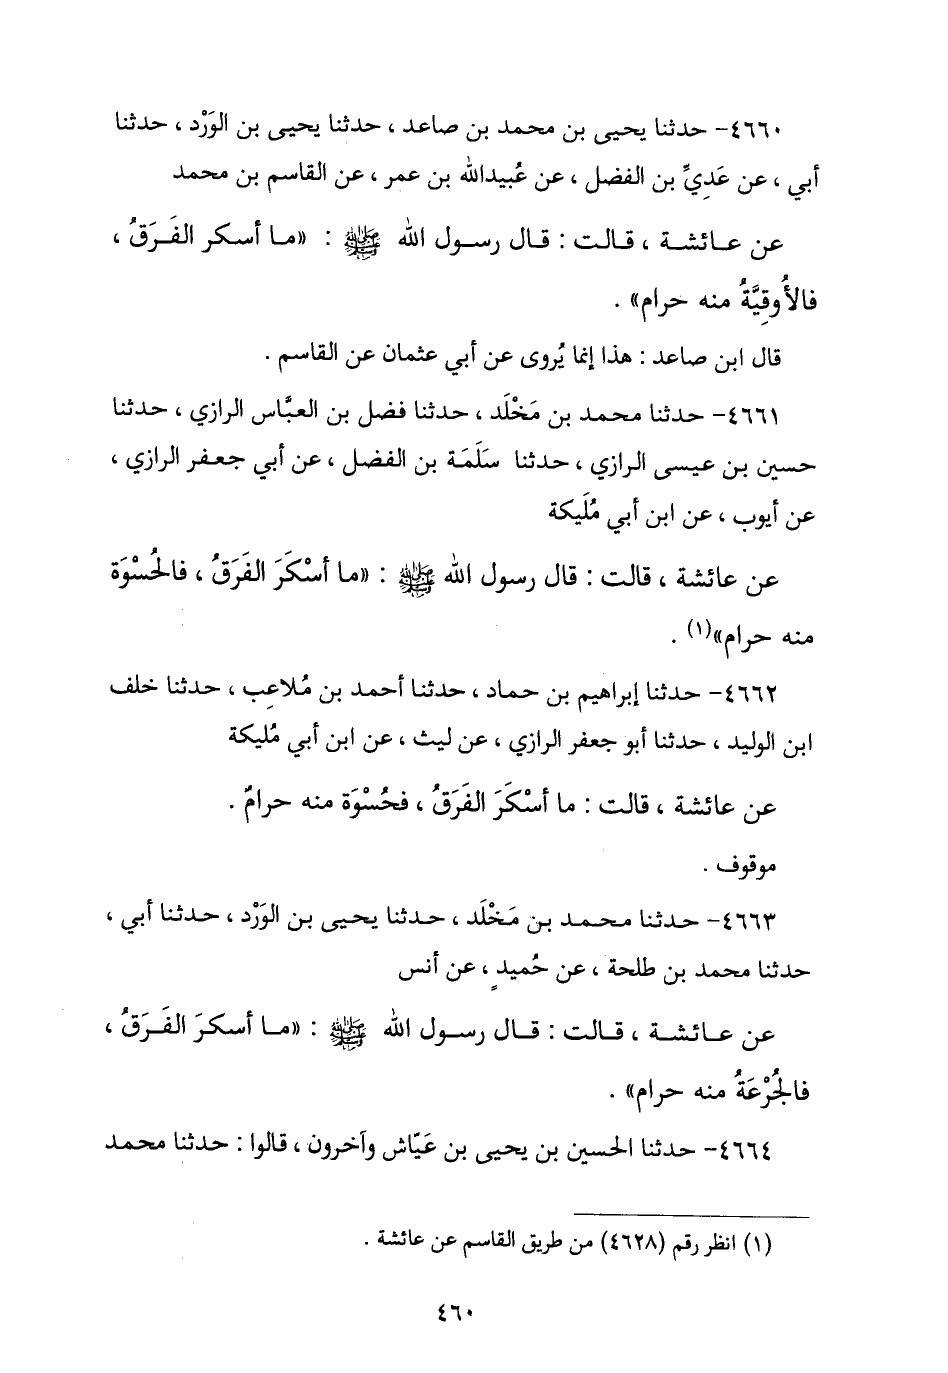 ٤٦٦٠- حدثنا يحيى بن محمد بن صاعد ، حدثنا يحيى بن الوَرْد ، حدثنا
أبي ، عن عَدِيِّ بن الفضل ، عن عُبيدالله بن عمر ، عن القاسم بن محمد
عن عائشة ، قالت : قال رسول الله ﷺ : «ما أسكر الفَرَقُ ،
فالأُوقِيَّةُ منه حرام» .
قال ابن صاعد : هذا إنما يُروى عن أبي عثمان عن القاسم .
٤٦٦١- حدثنا محمد بن مَخْلَد ، حدثنا فضل بن العبَّاس الرازي ، حدثنا
حسين بن عيسى الرازي ، حدثنا سَلَمَة بن الفضل ، عن أبي جعفر الرازي ،
عن أيوب ، عن ابن أبي مُلَيكة
عن عائشة ، قالت : قال رسول الله ﷺ : «ما أسْكَرَ الفَرَقُ ، فالحُسْوَة
منه حرام»(١) .
٤٦٦٢- حدثنا إبراهيم بن حماد ، حدثنا أحمد بن مُلاعِب ، حدثنا خلف
ابن الوليد ، حدثنا أبو جعفر الرازي ، عن ليث ، عن ابن أبي مُليكة
عن عائشة ، قالت : ما أسْكَرَ الفَرَقُ ، فحُسْوَة منه حرامٌ .
موقوف .
٤٦٦٣- حدثنا محمد بن مَخْلَد ، حدثنا يحيى بن الوَرْد ، حدثنا أبي ،
حدثنا محمد بن طلحة ، عن حُميدٍ ، عن أنس
عن عائشة ، قالت : قال رسول الله ﷺ : «ما أسكرَ الفَرَقُ ،
فالجُرْعَةُ منه حرام» .
٤٦٦٤- حدثنا الحسين بن يحيى بن عَيّاش وآخرون ، قالوا : حدثنا محمد
(١) انظر رقم (٤٦٢٨) من طريق القاسم عن عائشة .
٤٦٠